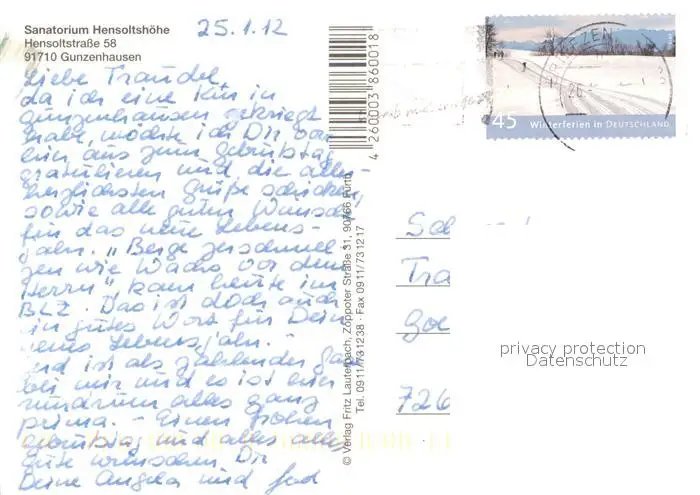 Sanatorium Hensoltshöhe
Hensoltstraße 58
91710 Gunzenhausen
25.1.12
Liebe Traudel,
da ich eine Kur in
Gunzenhausen gekriegt
habe, möchte ich Dir von
hier aus zum Geburtstag
gratulieren und die aller-
herzlichsten Grüße schicken,
sowie alle guten Wünsche
für das neue Lebens-
jahr. "Berge zerschmel-
zen wie Wachs vor dem
Herrn", kam heute im
BLZ. Das ist doch auch
ein gutes Wort für Dein
neues Lebensjahr.
und ist als
bei mir und es ist hier
rundrum alles ganz
prima. - Einen frohen
Geburtstag und alles alles
Gute wünschen Dir
Deine Angela und
4 260003 860018
© Verlag Fritz Lauterbach, Zoppoter Straße 31, 90766 Fürth
Tel. 0911/731238 · Fax 0911/731217
45 Winterferien in DEUTSCHLAND
Sch
Tra
Goe
726
privacy protection
Datenschutz